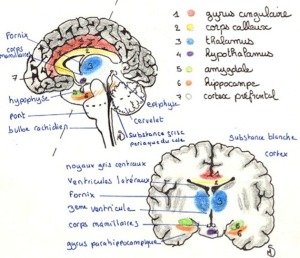 Fornix
corps
mamillaires
7
hypophyse
pont
bulbe rachidien
épiphyse
cervelet
Substance grise
périaqueducale
1 gyrus cingulaire
2 corps calleux
3 thalamus
4 hypothalamus
5 amygdale
6 hippocampe
7 cortex préfrontal
Substance blanche
cortex
noyaux gris centraux
ventricules latéraux
Fornix
3ème ventricule
corps mamillaires
gyrus parahippocampique